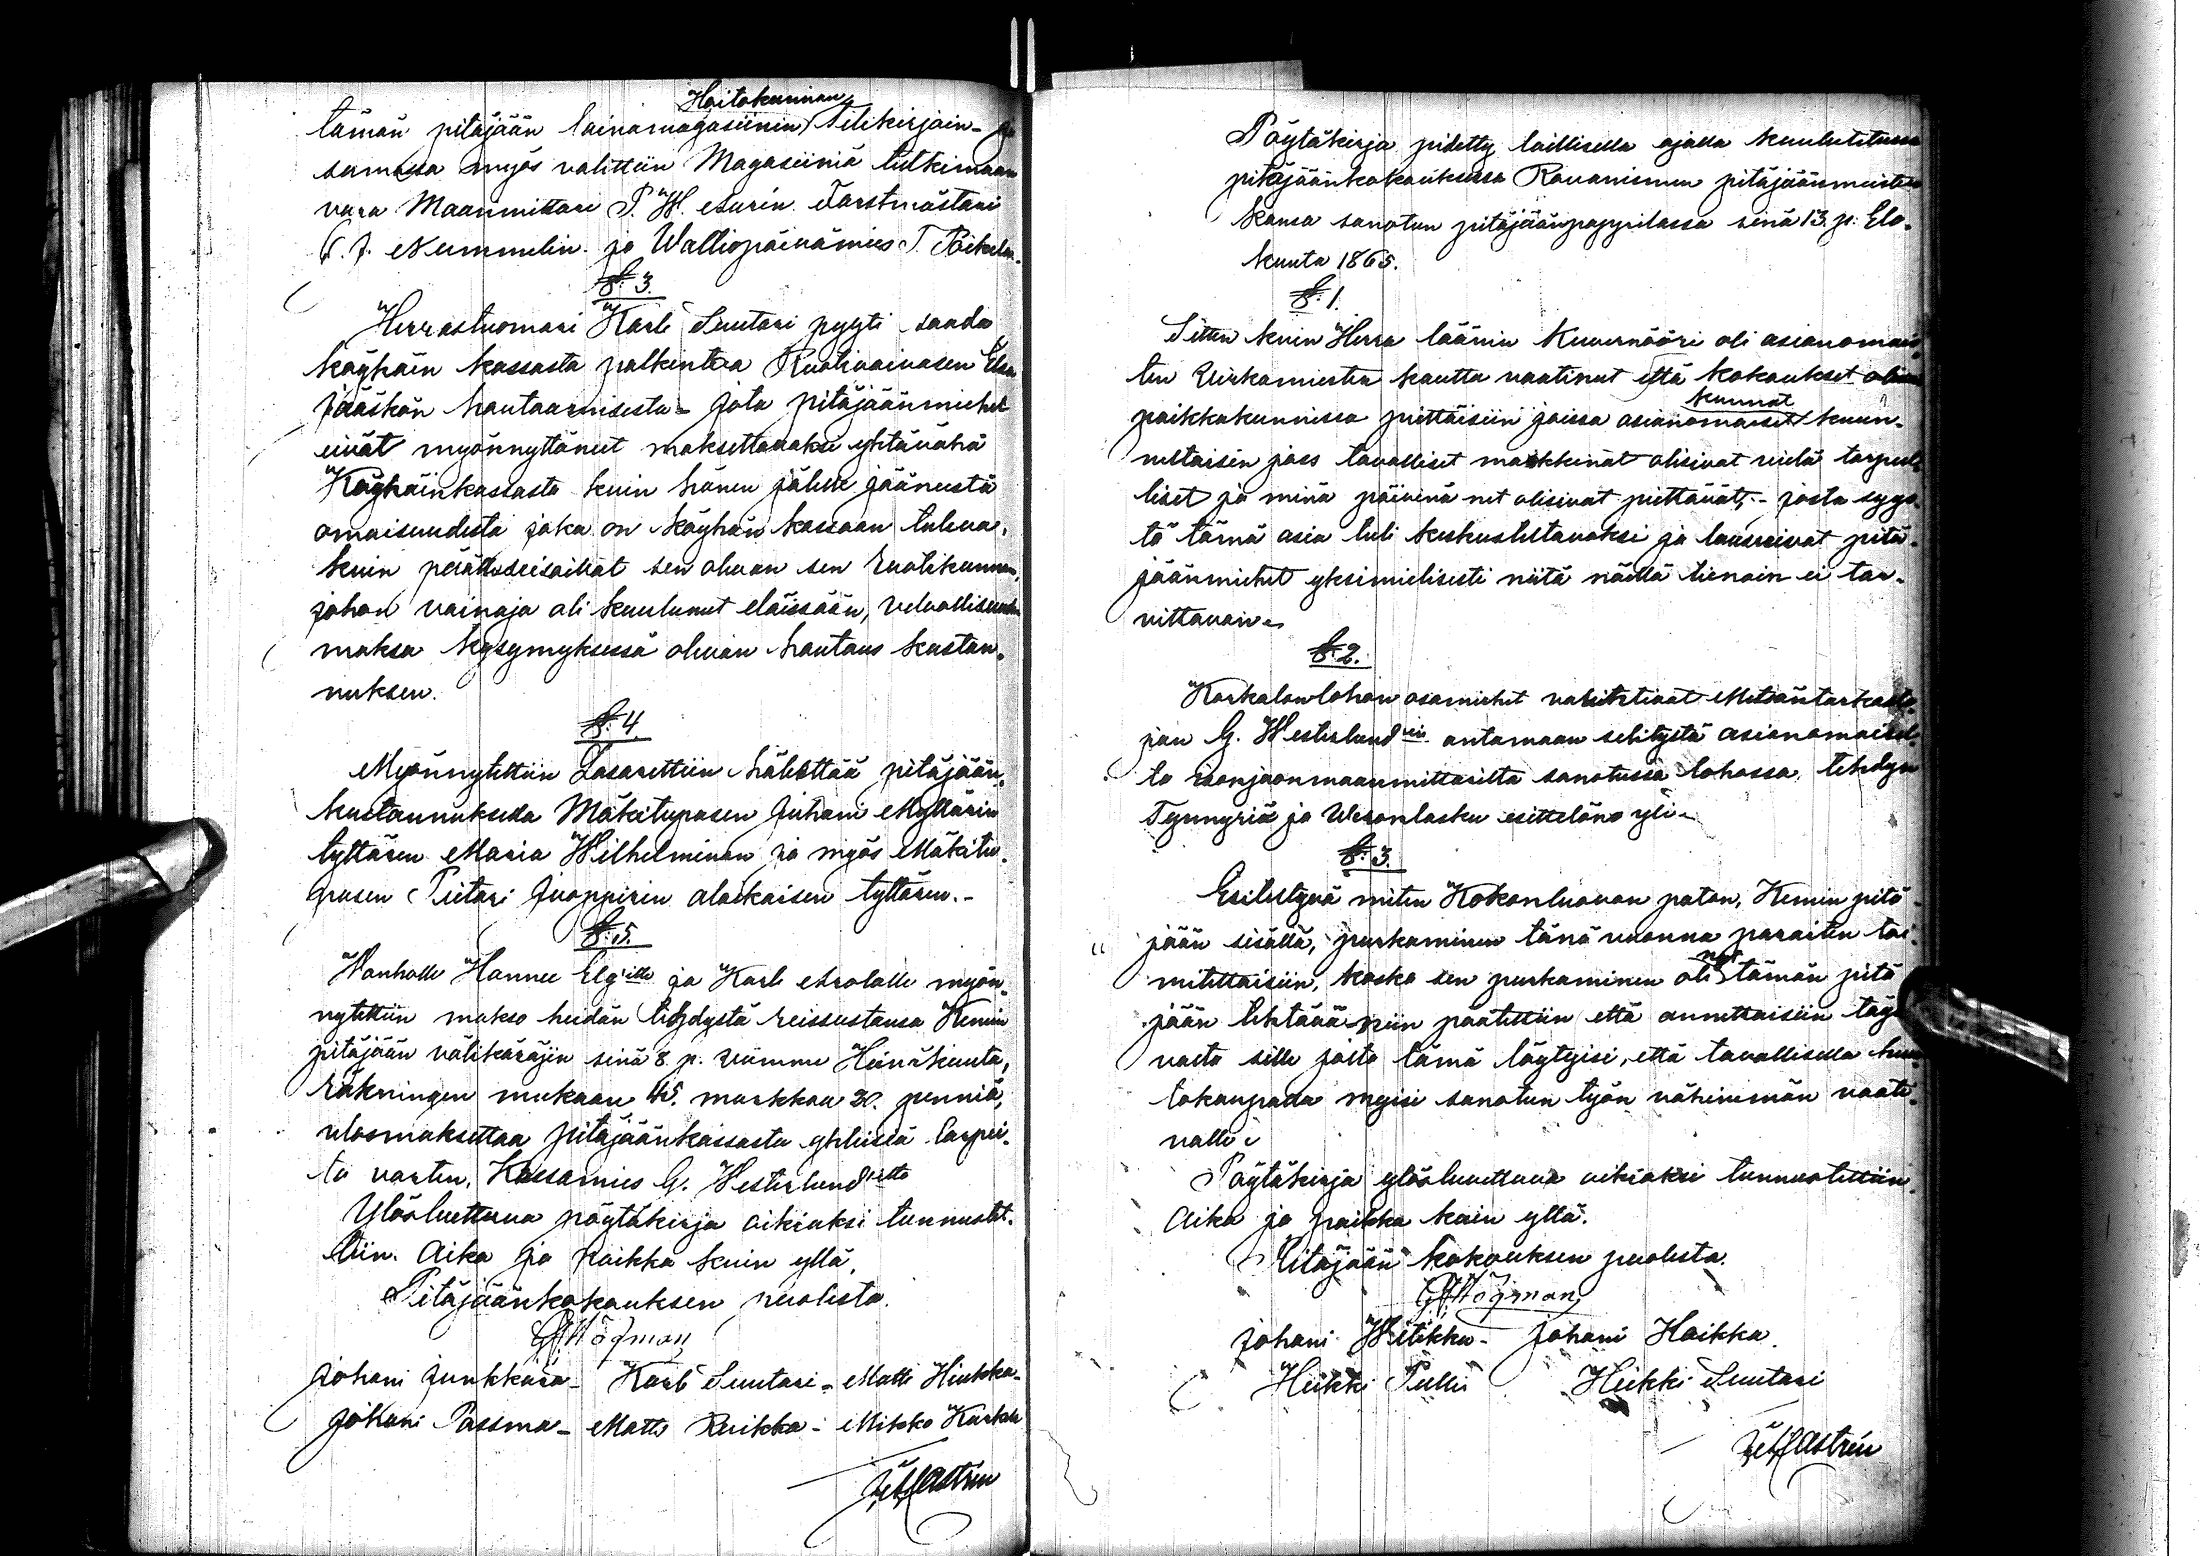 Hoitokunnan
tämän pitäjään lainamagasiinin Tilikirjain- ja
samassa myös valittiin Magasiiniä tutkimaan
vara Maanmittari P. W. Aurén. Forstmästari
C. J. Nummelin. ja Walliopäivämies T. Poikela.
§. 3.
Herrastuomari Karli Suutari pyyti saada
köyhäin kassasta palkintoa Ruotivaivasen Elsa
Jääskön hautaamisesta - Jota pitäjäänmiehet
eivät myönnyttäneet maksettavaksi yhtävähä
Köyhäinkassasta kuin hänen jälkee jääneestä
omaisuudesta joka on köyhäin kassaan tuleva,
kuin perättseisoivat sen olevan sen ruotikunnan,
johon vainaja oli kuulunut eläissään, velvollisuuden
maksa kysymyksessä olevan hautaus kustan-
nuksen.
§. 4.
Myönnytettiin Lasarettiin lähettää pitäjään
kustannuksella Mäkitupasen Juhani Myllärin
tyttären Maria Wilhelminan ja myös Mäkitu-
pasen Pietari Juopperin alaikaisen tyttären.-
§. 5.
Wanhalle Hannu Elg'ille ja Karli Arolalle myön-
nytettiin makso heidän tehdystä reissustansa Kemin
pitäjään välikäräjiin sinä 8 p. viimme Heinäkuuta,
räkningen mukaan 45. markkaa 20. penniä,
ulosmaksettaa pitäjäänkassasta yhteisiä tarpei-
ta varten, Kassamies G. Westerlund'ilta
Ylösluettuna pöytäkirja oikiaksi tunnustet-
tiin. Aika ja Paikka kuin yllä.
Pitäjäänkokouksen puolesta.
G. Högman
Johani Junkkara - Karli Suutari - Matti Hiukka -
Johani Passma - Matti Ruikka - Mikko Kurkki
Castrén
Pöytäkirja pidetty laillisella ajalla kuulutetussa
pitäjäänkokouksessa Rovaniemen pitäjäänmiesten
kansa sanotun pitäjäänpappilassa sinä 13. p. Elo-
kuuta 1865.
§. 1.
Sitten kuin Herra läänin Kuvernööri oli asianomais-
ten Virkamiesten kautta vaatinut että kokoukset olisi
kunnat
paikkakunnissa piettäisiin joissa asianomaiset kuun-
neltaisiin jaos tavalliset markkinat olisivat vielä tarpeel-
liset ja minä päivinä net olisivat piettävät, - josta syys-
tä tämä asia tuli keskusteltavaksi ja lausuivat pitä-
jäänmiehet yksimielisesti niitä näillä tienoin ei tar-
vittavan.
§. 2.
Korkalonlohon osamiehet Metsäntarkasta-
jan G. Westerlund'in antamaan selitystä asianomaisel-
ta isonjaonmaanmittarilta sanotussa lohossa, tehdyn
Tynnyriä ja Weronlasku esittelöns yli.
§. 3.
Esitestynä miten Kokonluovan paton, Kemin pitä-
jään sisällä, purkaminen tänä vuonna paraiten toi-
nyt
mitettaisiin, koska sen purkaminen oli tämän pitä
jään tehtävä niin päätettiin että annettaisiin täy-
valta sille josta tämä löytyisi, että tavallisella huu-
tokaupada myisi sanotun työn vähimmän vaati-
valle.
Pöytäkirja ylösluettuna oikiaksi tunnustettiin.
Aika ja paikka kuin yllä.
Pitäjään kokouksen puolesta.
G. Högman
Johani Witikka - Johani Haikka.
Heikki Pulli Heikki Suutari
Castrén